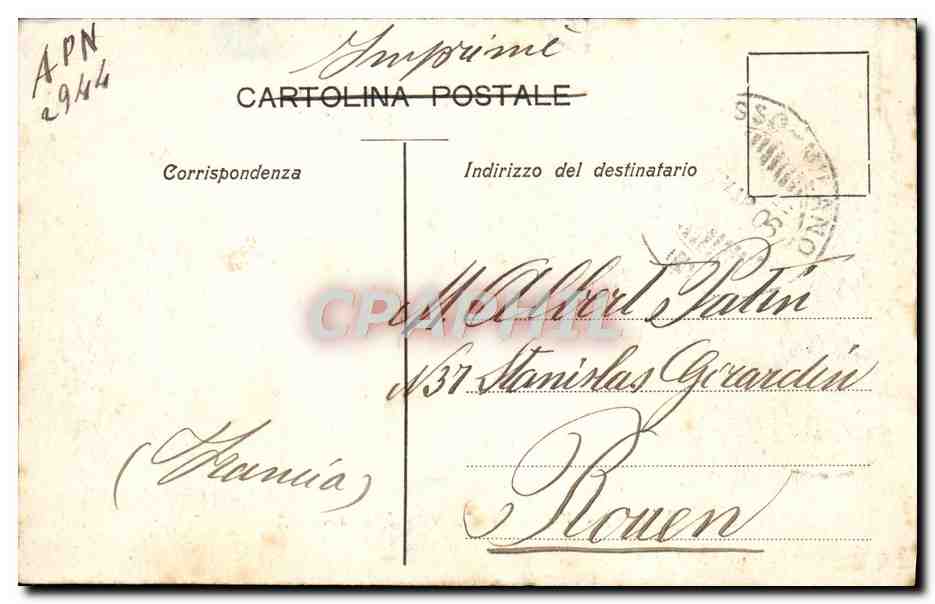 APN
2944
Imprimé
CARTOLINA POSTALE
Corrispondenza
Indirizzo del destinatario
M Albert Patin
N 37 Stanislas Girardin
Rouen
(Francia)
CPAPHIL